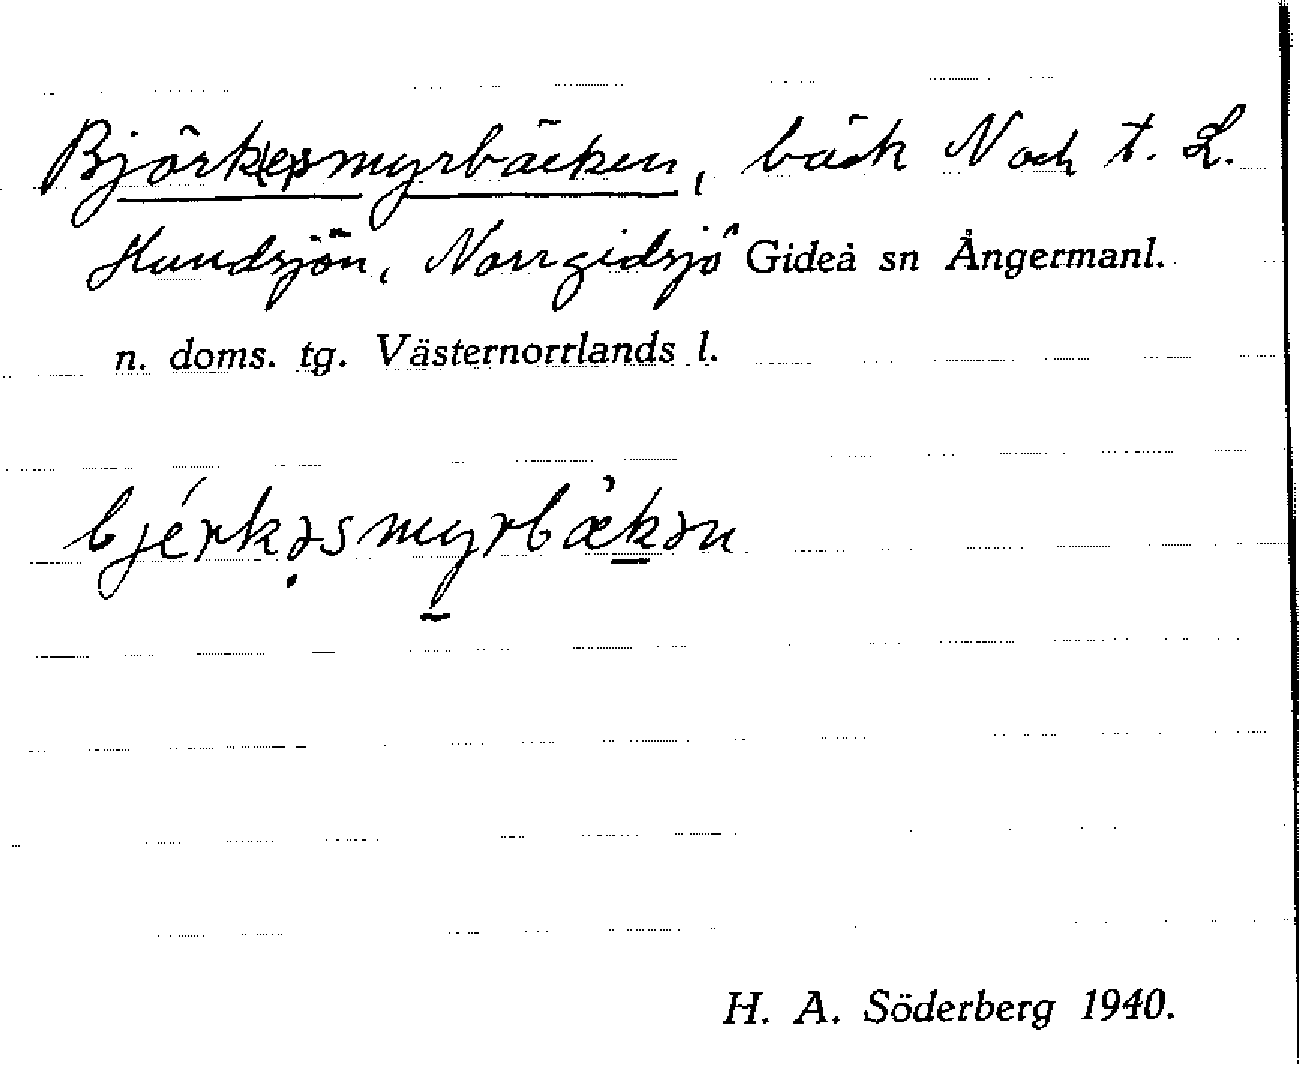 Björk(e)smyrbäcken, bäck N och t. L.
Hundsjön, Norrgidsjö Gideå sn Ångermanl.
n. doms. tg. Västernorrlands l.
bjérkəsmyrbæ̀kən
H. A. Söderberg 1940.